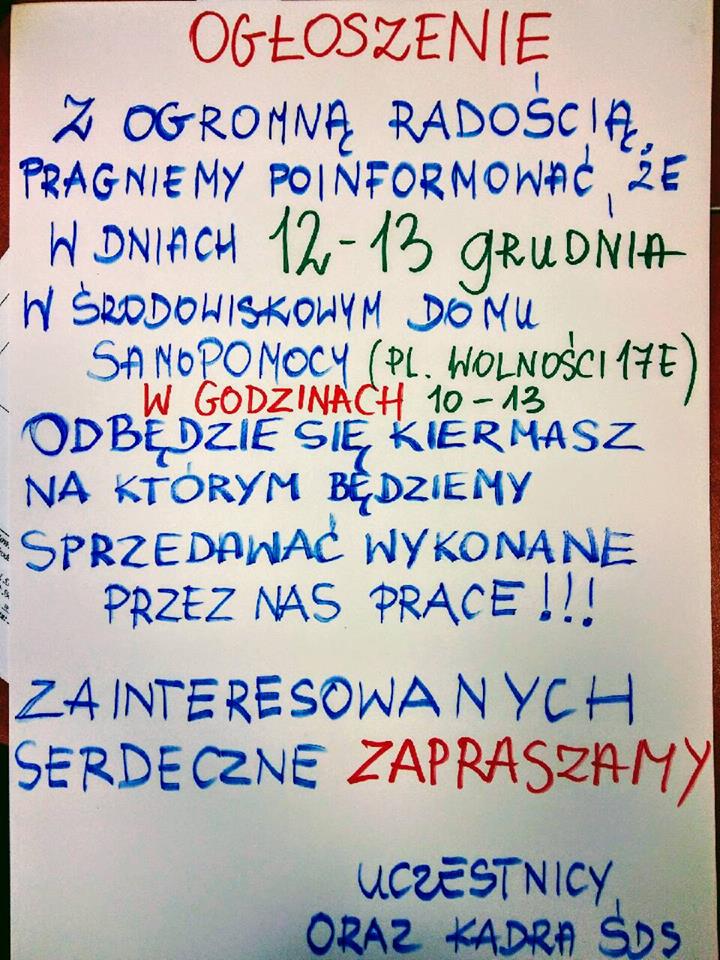 OGŁOSZENIE
Z OGROMNĄ RADOŚCIĄ,
PRAGNIEMY POINFORMOWAĆ, ŻE
W DNIACH 12-13 GRUDNIA
W ŚRODOWISKOWYM DOMU
SAMOPOMOCY (PL. WOLNOŚCI 17E)
W GODZINACH 10-13
ODBĘDZIE SIĘ KIERMASZ
NA KTÓRYM BĘDZIEMY
SPRZEDAWAĆ WYKONANE
PRZEZ NAS PRACE!!!
ZAINTERESOWANYCH
SERDECZNE ZAPRASZAMY
UCZESTNICY
ORAZ KADRA ŚDS